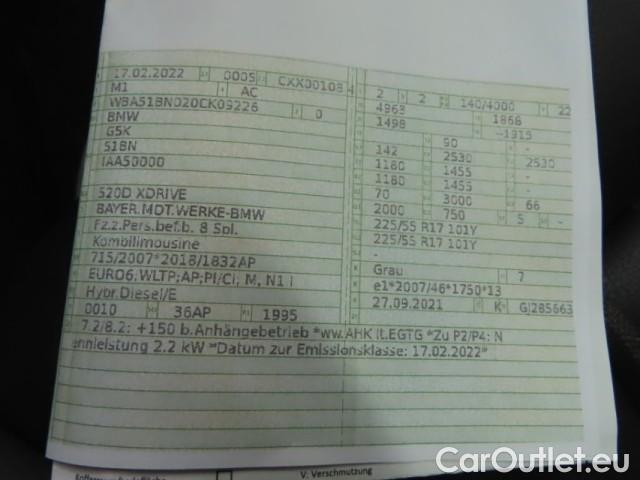 17.02.2022 0005 CXX00108 4
M1 AC
WBA51BN020CK09226 0
BMW
G5K
51BN
IAA50000
520D XDRIVE
BAYER.MOT.WERKE-BMW
Fz.z.Pers.bef.b. 8 Spl.
Kombilimousine
715/2007*2018/1832AP
EURO6;WLTP;AP;PI/CI, M, N1 I
Hybr.Diesel/E
0010 36AP 1995
2 2 140/4000 22
4963 1868
1498 -1915
90 -
142 2530 2530
1180 1455 -
1180 1455 -
70 3000 66
2000 750 5 -
225/55 R17 101Y
225/55 R17 101Y
-
Grau 7
e1*2007/46*1750*13
27.09.2021 K GJ285663
7.2/8.2: +150 b.Anhängebetrieb *ww.AHK lt.EGTG *Zu P2/P4: N
ennleistung 2.2 kW *Datum zur Emissionsklasse: 17.02.2022*
V: Verschmutzung
CarOutlet.eu